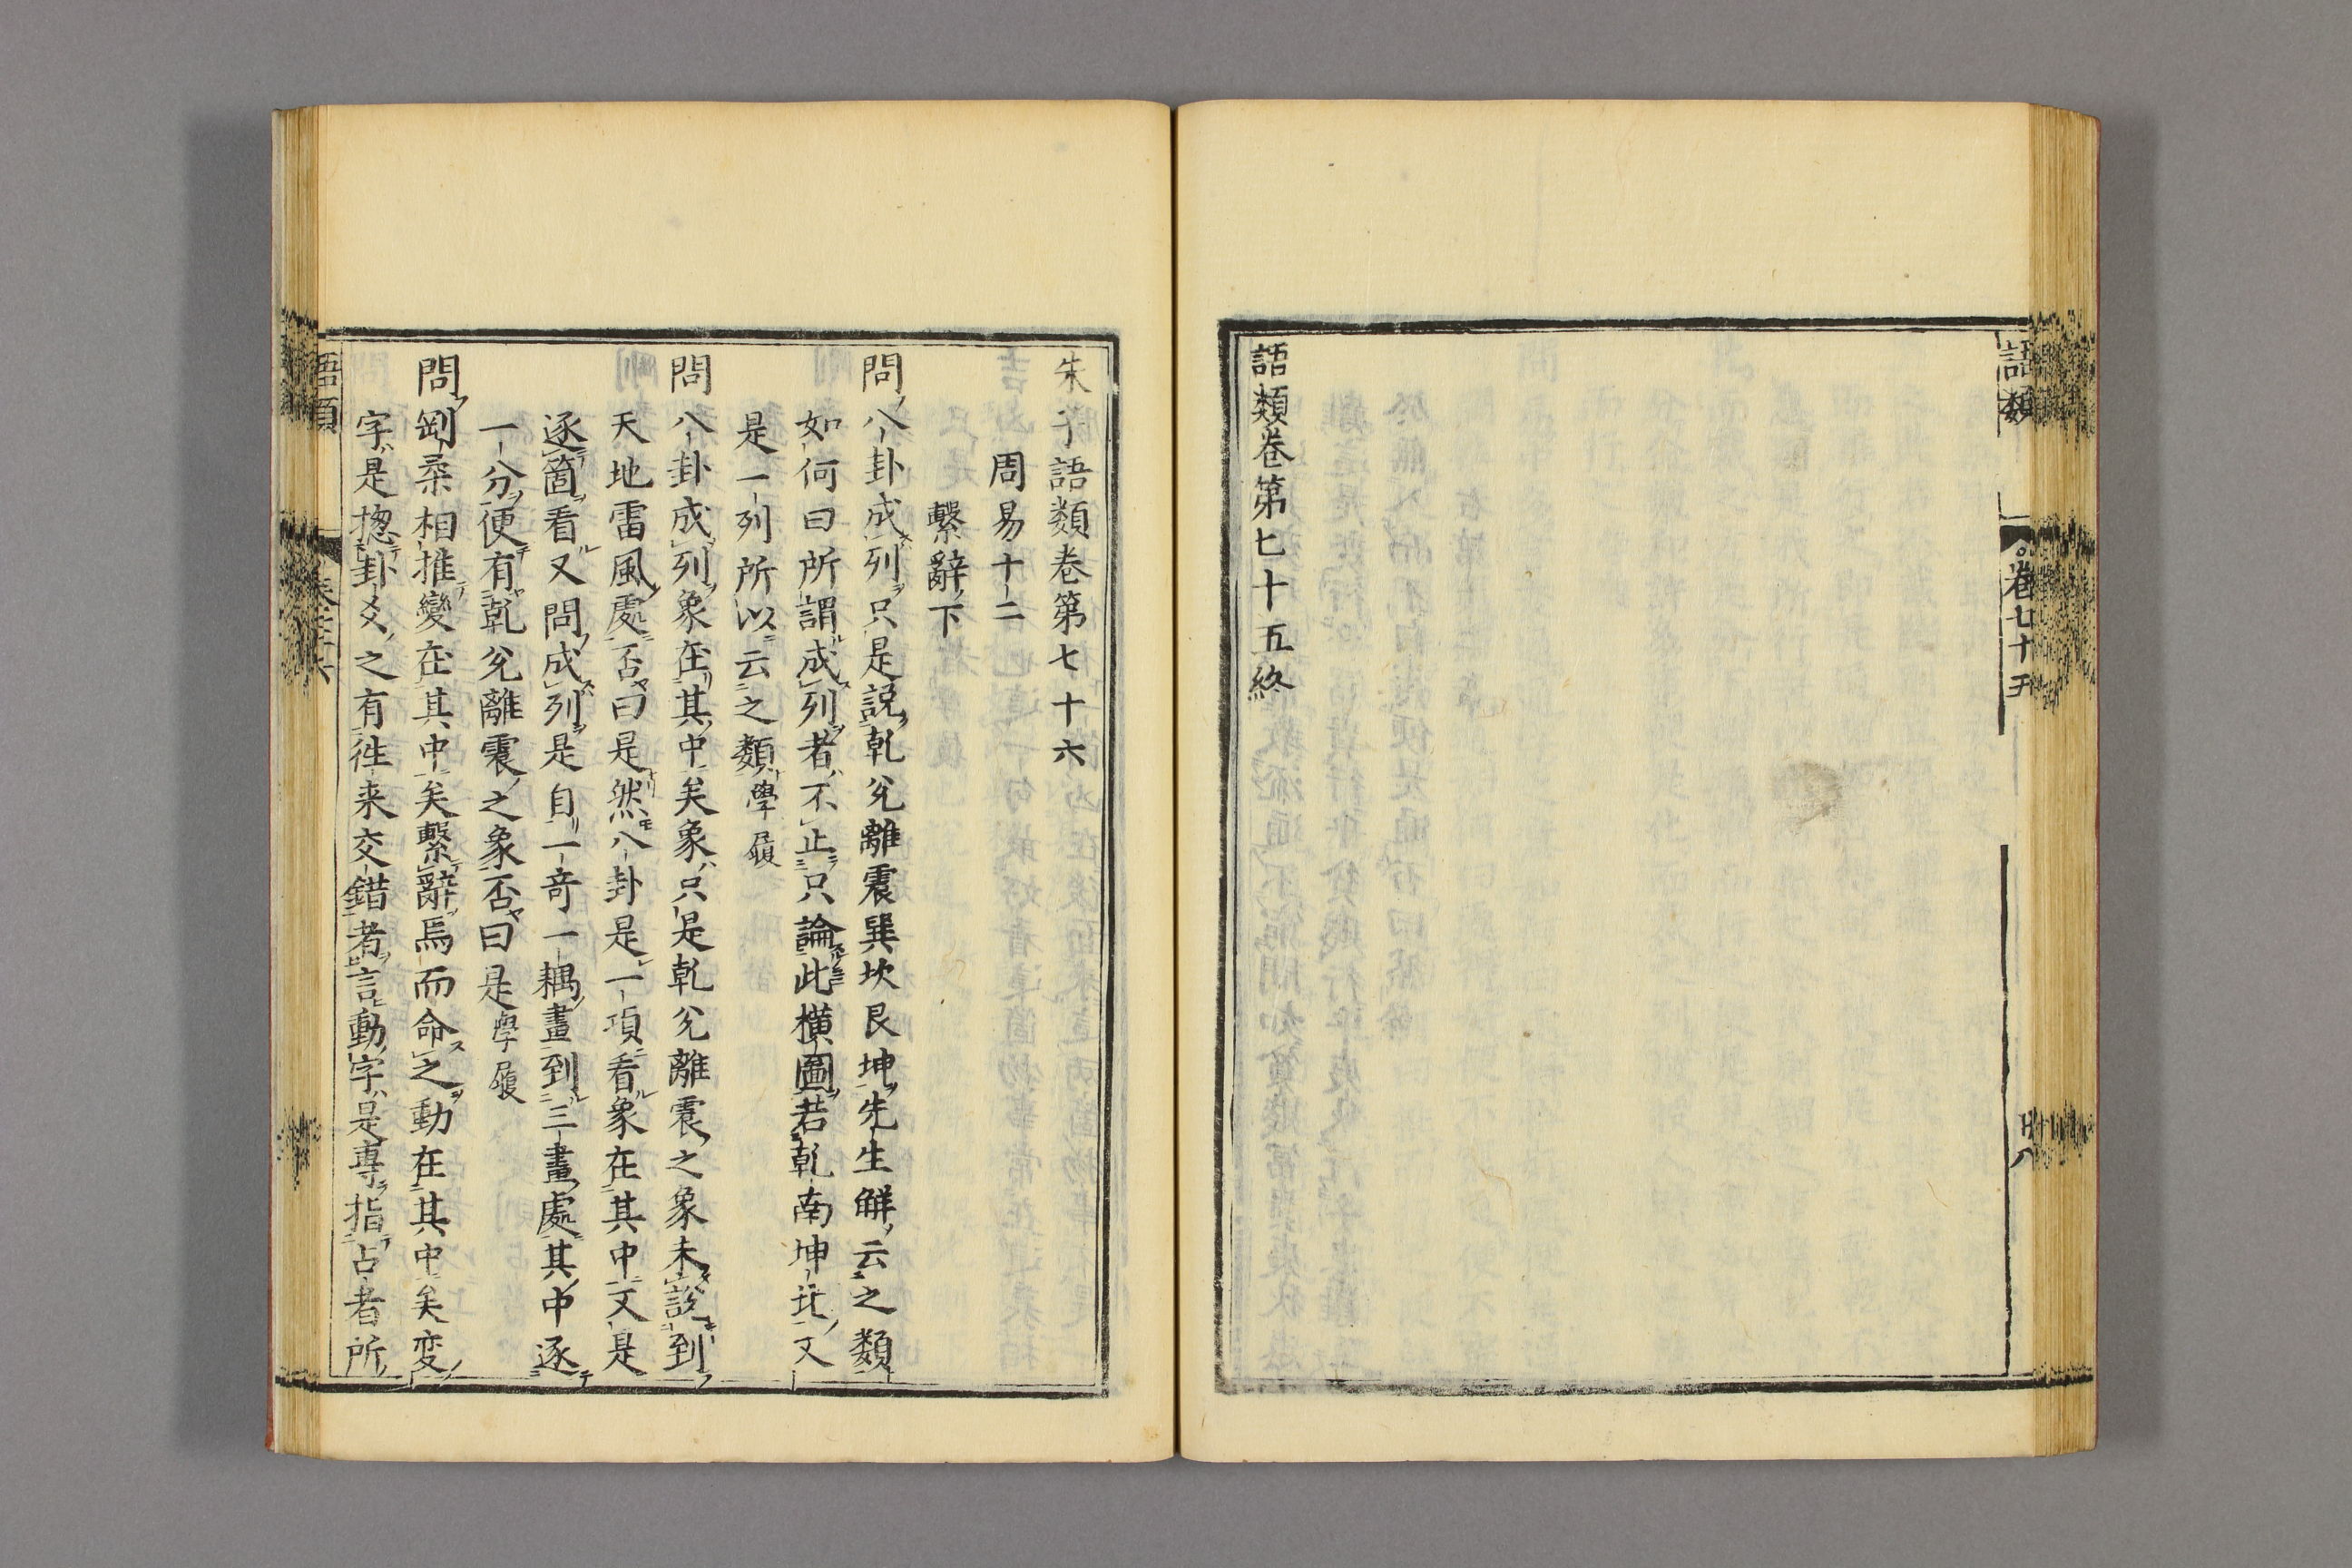 語類
卷七十五
語類卷第七十五終
朱子語類卷第七十六
周易十二
繫辭下
問八卦成列只是説乾兊離震巽坎艮坤先生解云之類
如何曰所謂成列者不止只論此橫圖若乾南坤北又
是一列所以云之類學履
問八卦成列象在其中矣象只是乾兊離震之象未説到
天地雷風處否曰是然八卦是一項看象在其中又是
逐箇看又問成列是自一竒一耦畫到三畫處其中逐
一分便有乾兊離震之象否曰是學履
問剛柔相推變在其中矣繫辭焉而命之動在其中矣変
字是揔卦爻之有徃来交錯者言動字是專指占者所
語類